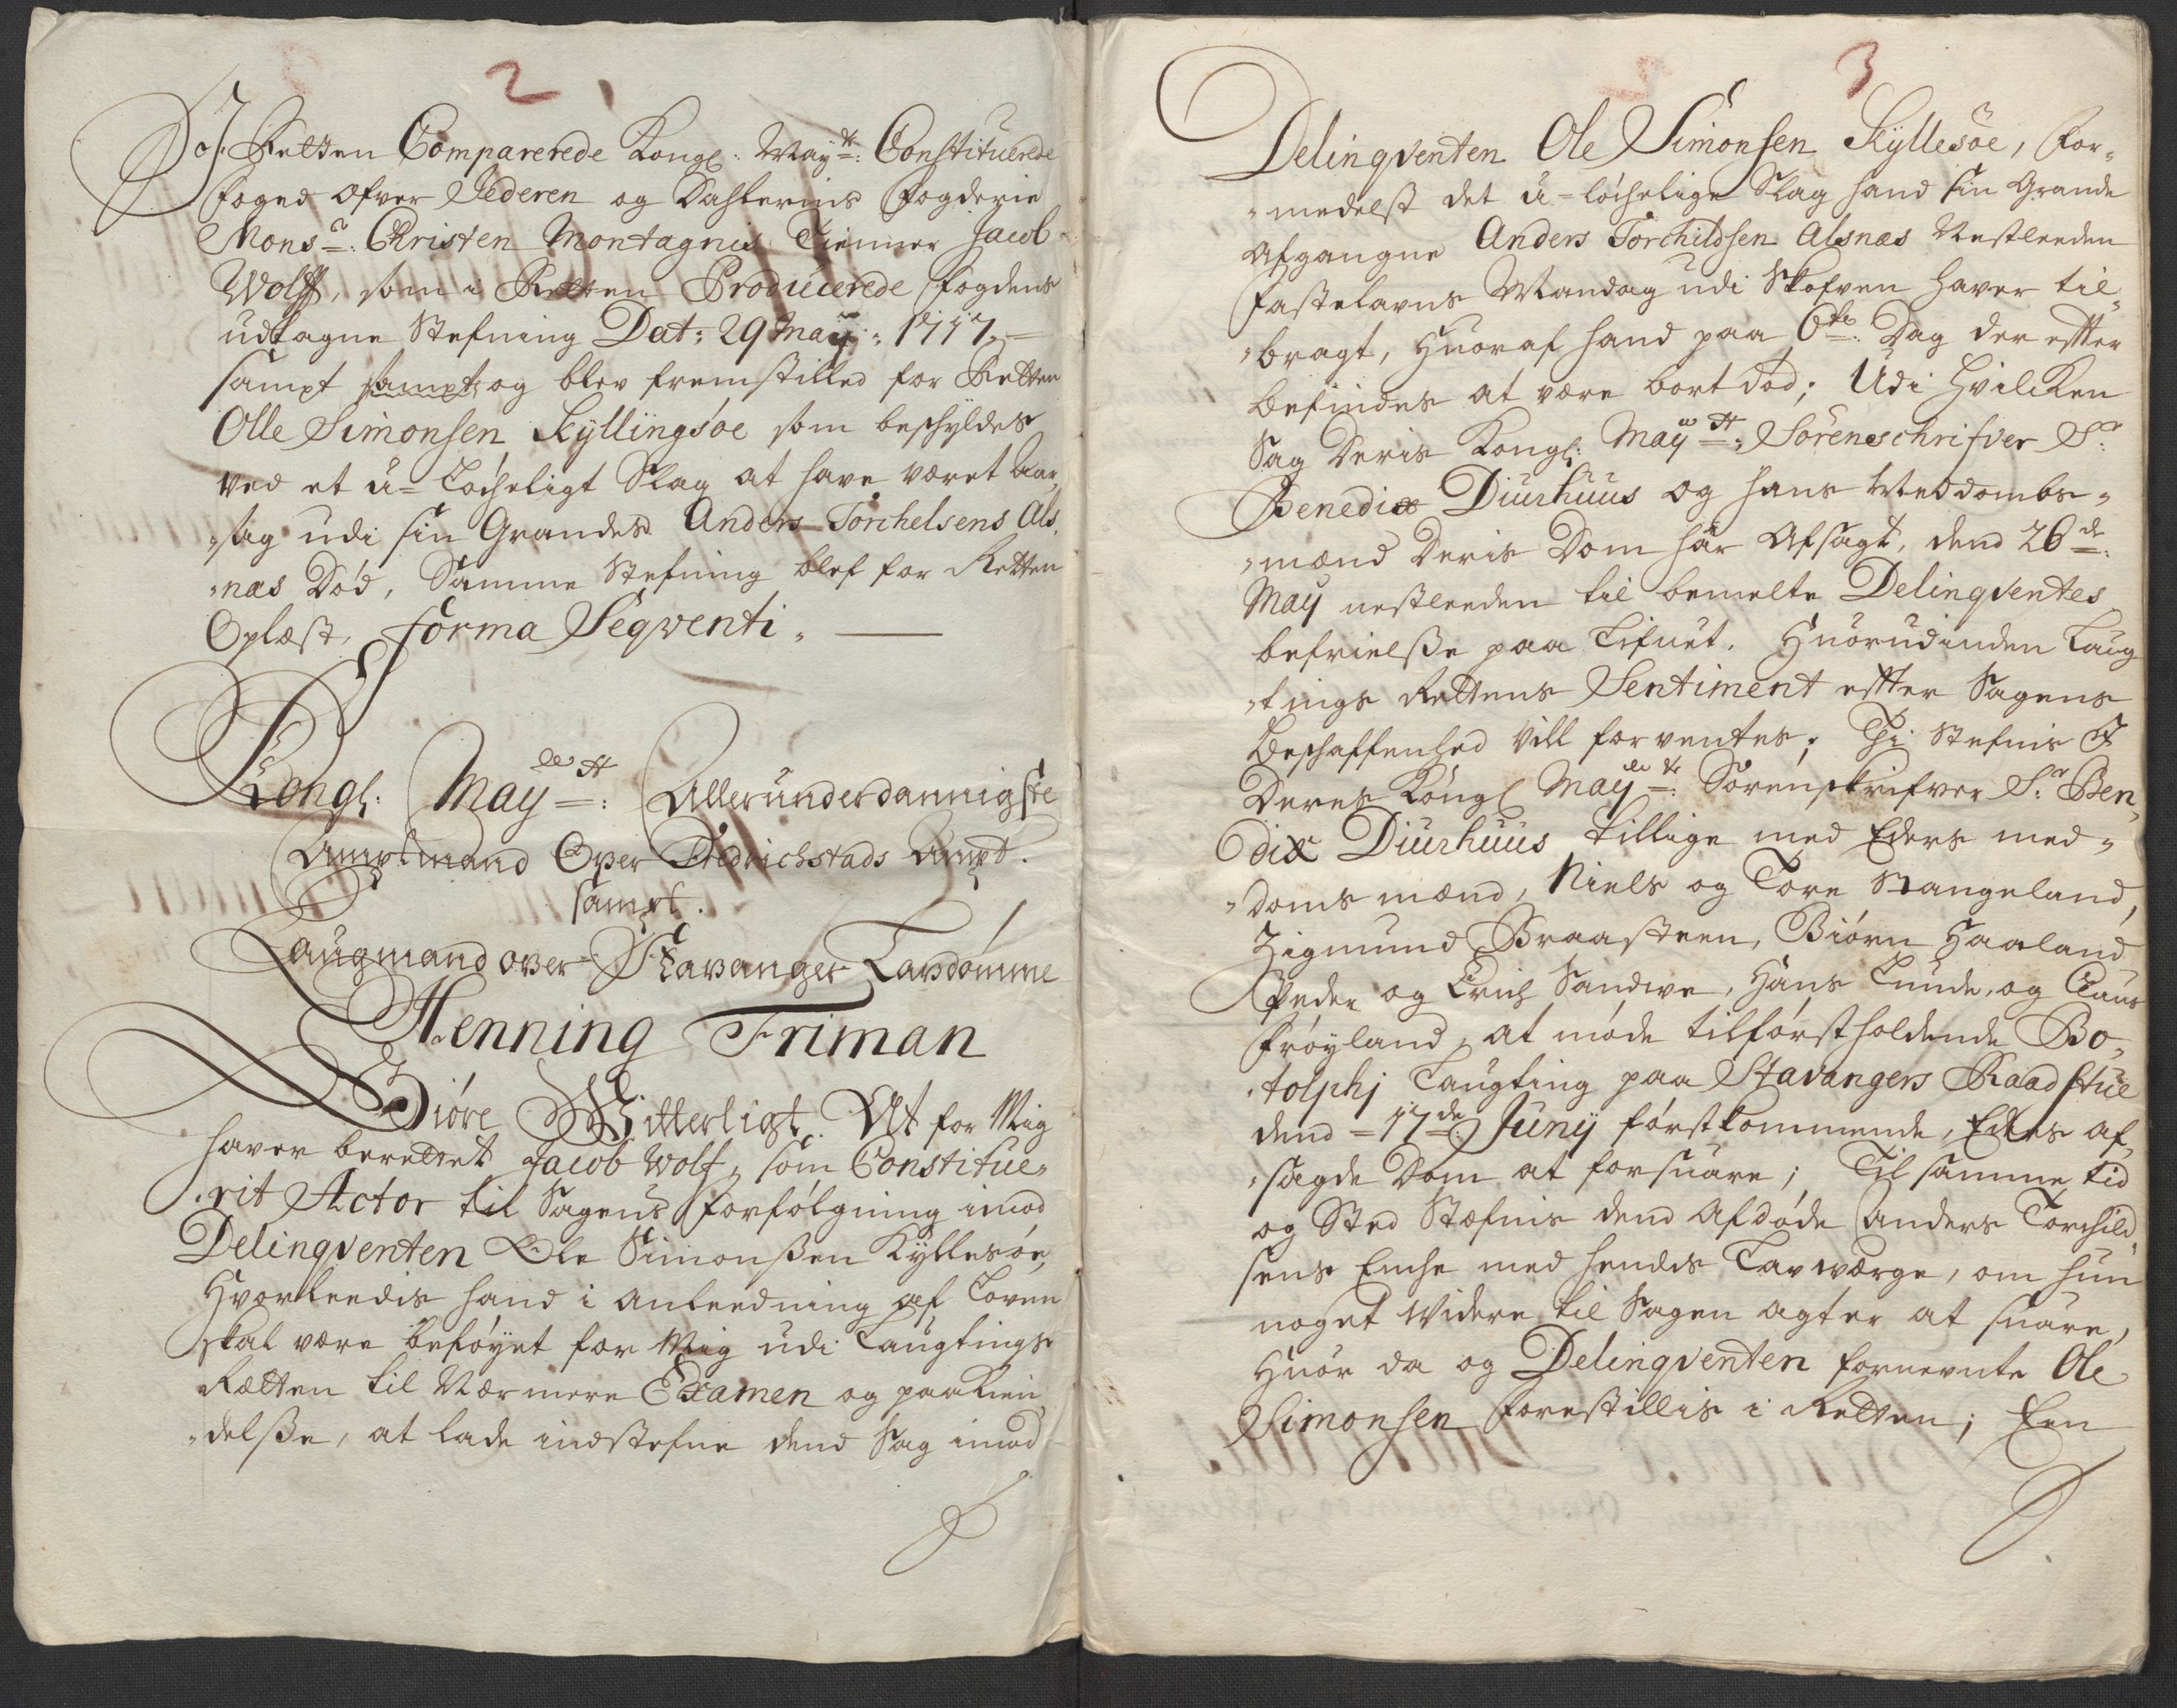 2
For Retten Comparerede Kongl: May:tt: Constituerede
Foged ofver Jederen og Dahlernis Fogderie
Mons:r: Christen Montagnis Tienner Jacob
Wolff, som i Retten Producerede Fogdens
udtagne Stefning Dat: 29 May: 1717, —
sampt sampt og blev fremstilled for Retten
Olle Simonsen Kyllingsøe som beskyldes
ved et u-Løcheligt Slag at have været Aar„
„sag udi sin Grandes Anders Torchelsens Als„
„næs Død, Samme Stefning blef for Retten
Oplæst, forma Seqventi. —
Kongl: May:tt: Allerunderdannigste
Amptmand Over Fridrichstads Ampt.
sampt.
Laugmand over Stavanger Lavdømme
Henning Friman
Giøre Witterligt. At for Mig
haver berettet Jacob Wolf, som Constitue„
„rit Actor til Sagens Forfølgning imod
Delinqventen Ole Simonssen Kyllesøe,
Hvorleedis hand i anleedning af Loven
skal være beføyet for Mig udi Laugtings
Rætten til Nærmere Examen og paakien„
„delsse, at lade indstefne dend Sag imod
3
Delinqventen Ole Simonsen Kyllesøe, For„
„medelst det u-løchelige Slag hand sin Grande
Afgangne Anders Torchildsen Alsnæs Nestleeden
Fastelavns Mandag udi Skofven haver til„
„bragt, Huoraf hand paa 6te: Dag der efter
befindes at være bort død; Udi hvilcken
Sag Deris Kongl: May:tt: Sørenschrifver S:r
Benedix Diurhuus og hans Meddombs„
„mænd Deris Dom har Afsagt, dend 26de:
May nestleeden til bemelte Delinqventes
befrielsse paa Lifuet. Huorudinden Laug
„tings Rettens Sentiment efter Sagens
Beschaffenhed vill forventes; Thi Stefnis I
Deres Kongl May:tt: Sørenskrifver S:r Ben„
dix Diurhuus tillige med Eders med„
„doms mænd, Niels og Tore Stangeland,
Zigmund Braasteen, Biørn Haaland
Peder og Erich Sandwe, Hans Lunde, og Claus
Frøyland, at møde tilførstholdende Bo„
„tolphj Laugting paa Stavangers Raadstue
dend 17de: Junij førstkommende, Eders af„
„sagde Dom at forsuare; Til samme tid
og Sted Stæfnis dend Afdøde Anders Torchild„
sens Enche med hendis Lavwærge, om hun
noget Widere til Sagen agter at suare,
Huor da og Delinqventen fornevnte Ole
Simonsen forestillis i Retten; Een